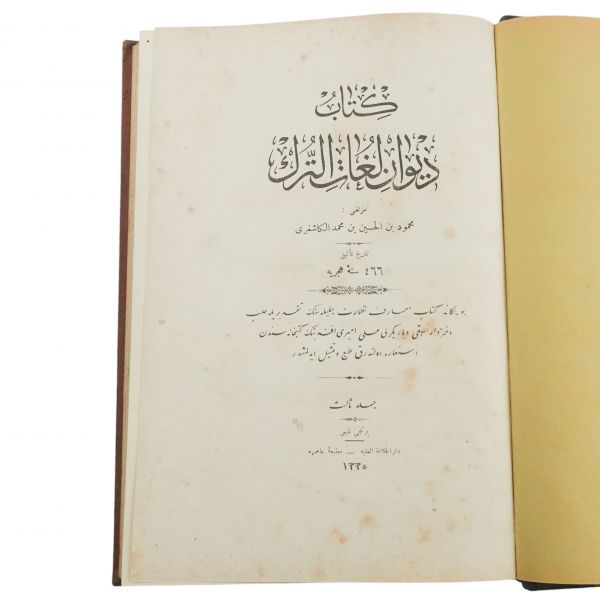 كتاب
ديوان لغات الترك
مؤلفى :
محمود بن الحسين بن محمد الكاشغرى
تاريخ تأليفى
٤٦٦ سنهٔ هجريه
بو يكانه كتاب معارف نظارت جليله سنك تقديريله حلب
دفتردار اسبقى دياربكرلى على اميرى افندينك كتبخانه سندن
استعاره اولنه رق طبع و تمثيل ايدلمشدر
جلد ثالث
برنجى طبعى
دار الخلافة العليه — مطبعهٔ عامره
١٣٣٥